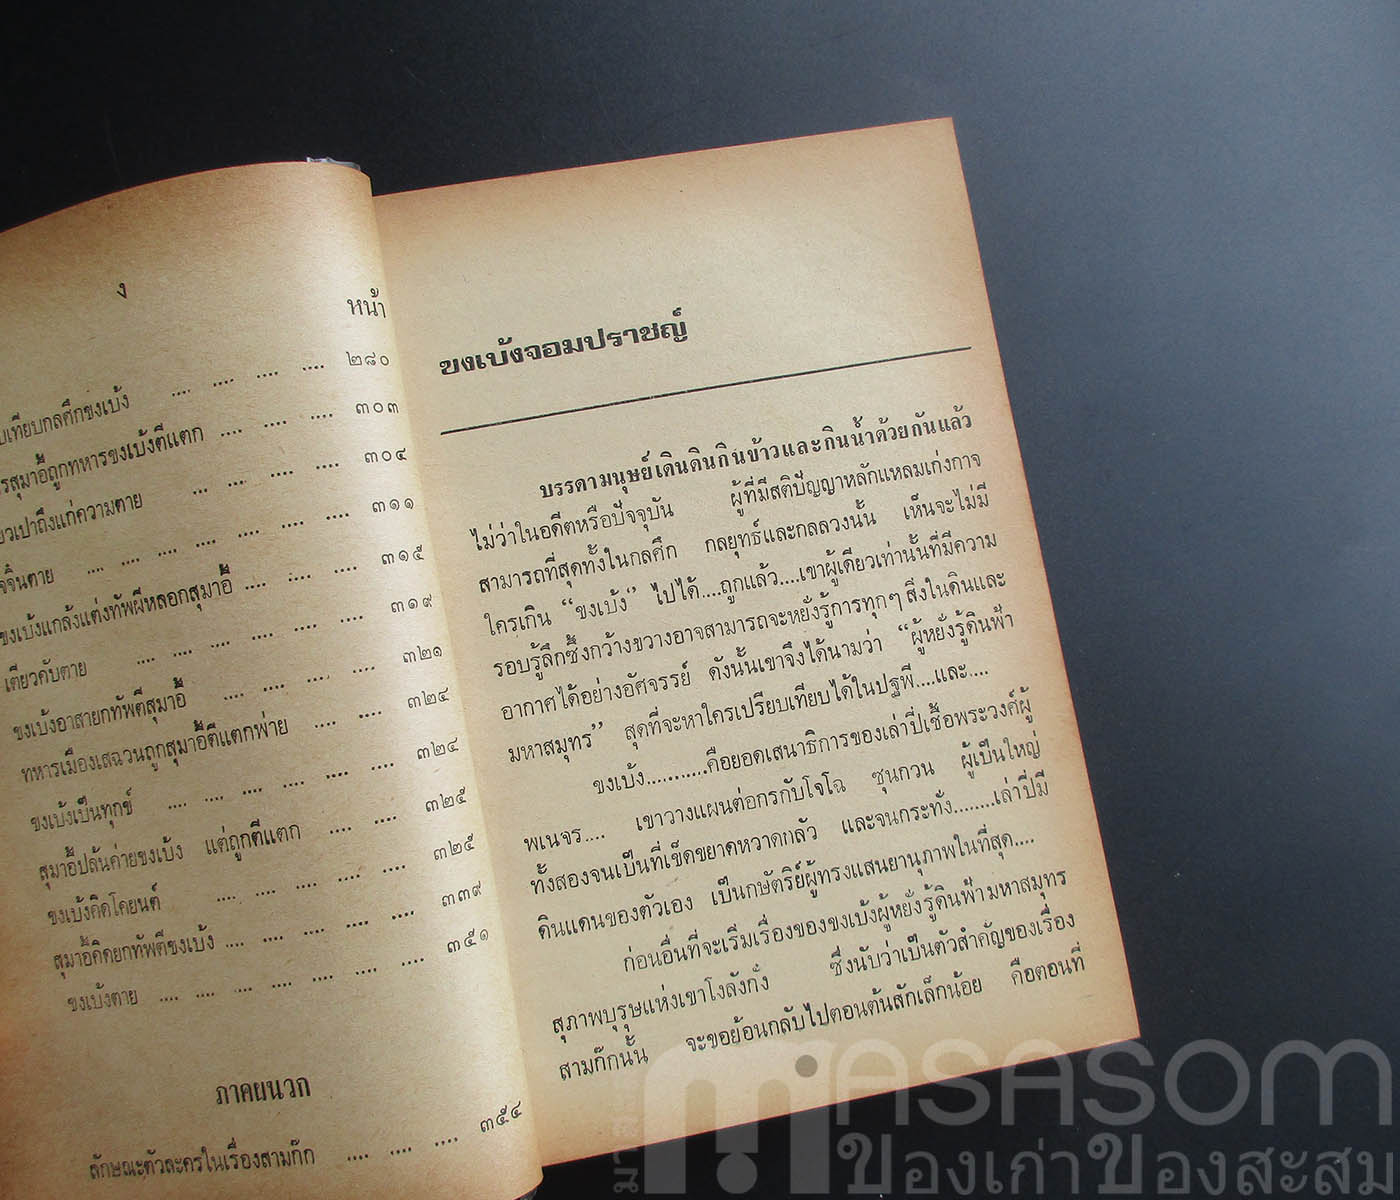 ง
หน้า
บเทียบกลศึกขงเบ้ง .... .... .... .... ๒๘๐
รสุมาอี้ถูกทหารขงเบ้งตีแตก .... .... .... ๓๐๓
ยวเปาถึงแก่ความตาย ... .... .... .... ๓๐๔
จิ๋นตาย .... .... .... .... .... .... ๓๑๑
ขงเบ้งแกล้งแต่งทัพผีหลอกสุมาอี้ .... .... .... ๓๑๕
เตียวคับตาย .... .... .... .... .... ๓๑๙
ขงเบ้งอาสายกทัพตีสุมาอี้ .... .... .... .... ๓๒๑
ทหารเมืองเสฉวนถูกสุมาอี้ตีแตกพ่าย .... .... .... ๓๒๔
ขงเบ้งเป็นทุกข์ .... .... .... .... .... .... ๓๒๔
สุมาอี้ปล้นค่ายขงเบ้ง แต่ถูกตีแตก .... .... .... ๓๒๕
ขงเบ้งคิดโคยนต์ .... .... .... .... .... ๓๒๕
สุมาอี้คิดยกทัพตีขงเบ้ง .... .... .... .... .... ๓๓๙
ขงเบ้งตาย .... .... .... .... .... .... .... ๓๕๑
ภาคผนวก
ลักษณะตัวละครในเรื่องสามก๊ก .... .... .... .... ๓๕๔
ขงเบ้งจอมปราชญ์
บรรดามนุษย์เดินดินกินข้าวและกินน้ำด้วยกันแล้ว
ไม่ว่าในอดีตหรือปัจจุบัน ผู้ที่มีสติปัญญาหลักแหลมเก่งกาจ
สามารถที่สุดทั้งในกลศึก กลยุทธ์และกลลวงนั้น เห็นจะไม่มี
ใครเกิน “ขงเบ้ง” ไปได้....ถูกแล้ว....เขาผู้เดียวเท่านั้นที่มีความ
รอบรู้ลึกซึ้งกว้างขวางอาจสามารถจะหยั่งรู้การทุกๆ สิ่งในดินและ
อากาศได้อย่างอัศจรรย์ ดังนั้นเขาจึงได้นามว่า “ผู้หยั่งรู้ดินฟ้า
มหาสมุทร” สุดที่จะหาใครเปรียบเทียบได้ในปฐพี....และ....
ขงเบ้ง...........คือยอดเสนาธิการของเล่าปี่เชื้อพระวงศ์ผู้
พเนจร.... เขาวางแผนต่อกรกับโจโฉ ซุนกวน ผู้เป็นใหญ่
ทั้งสองจนเป็นที่เข็ดขยาดหวาดกลัว และจนกระทั่ง........เล่าปี่มี
ดินแดนของตัวเอง เป็นกษัตริย์ผู้ทรงแสนยานุภาพในที่สุด....
ก่อนอื่นที่จะเริ่มเรื่องของขงเบ้งผู้หยั่งรู้ดินฟ้ามหาสมุทร
สุภาพบุรุษแห่งเขาโงลังกั๋ง ซึ่งนับว่าเป็นตัวสำคัญของเรื่อง
สามก๊กนั้น จะขอย้อนกลับไปตอนต้นสักเล็กน้อย คือตอนที่
masasom
ของเก่าของสะสม